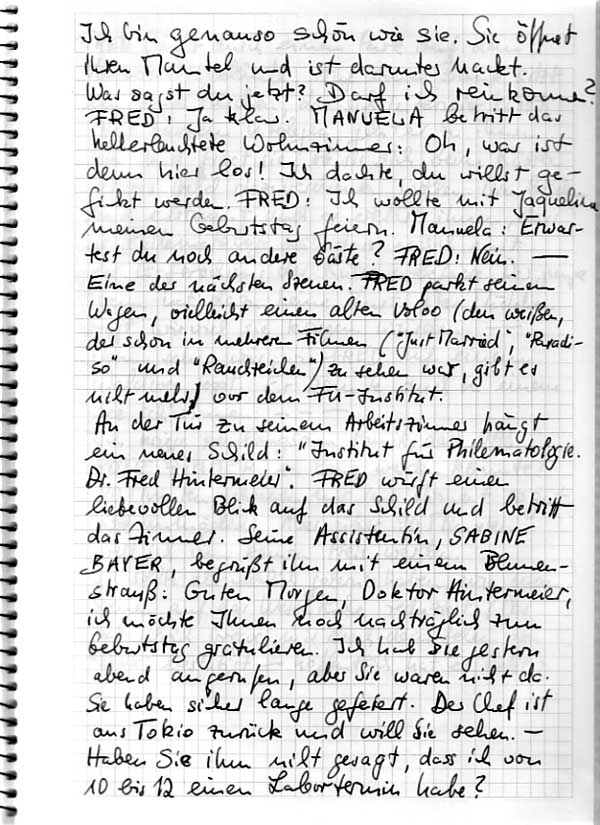 Ich bin genauso schön wie sie. Sie öffnet
ihren Mantel und ist darunter nackt.
Was sagst du jetzt? Darf ich reinkommen?
FRED: Ja klar. MANUELA betritt das
hellerleuchtete Wohnzimmer: Oh, was ist
denn hier los! Ich dachte, du willst ge-
fickt werden. FRED: Ich wollte mit Jaqueline
meinen Geburtstag feiern. Manuela: Erwar-
test du noch andere Gäste? FRED: Nein. —
Eine der nächsten Szenen. FRED parkt seinen
Wagen, vielleicht einen alten Volvo (den weißen,
der schon in mehreren Filmen ("Just Married", "Paradi-
so" und "Rauchzeichen") zu sehen war, gibt es
nicht mehr) vor dem FU-Institut.
An der Tür zu seinem Arbeitszimmer hängt
ein neues Schild: "Institut für Philematologie.
Dr. Fred Hintermeier". FRED wirft einen
liebevollen Blick auf das Schild und betritt
das Zimmer. Seine Assistentin, SABINE
BAYER, begrüßt ihn mit einem Blumen-
strauß: Guten Morgen, Doktor Hintermeier,
ich möchte Ihnen noch nachträglich zum
Geburtstag gratulieren. Ich hab Sie gestern
abend angerufen, aber Sie waren nicht da.
Sie haben sicher lange gefeiert. Der Chef ist
aus Tokio zurück und will Sie sehen. —
Haben Sie ihm nicht gesagt, dass ich von
10 bis 12 einen Labortermin habe?